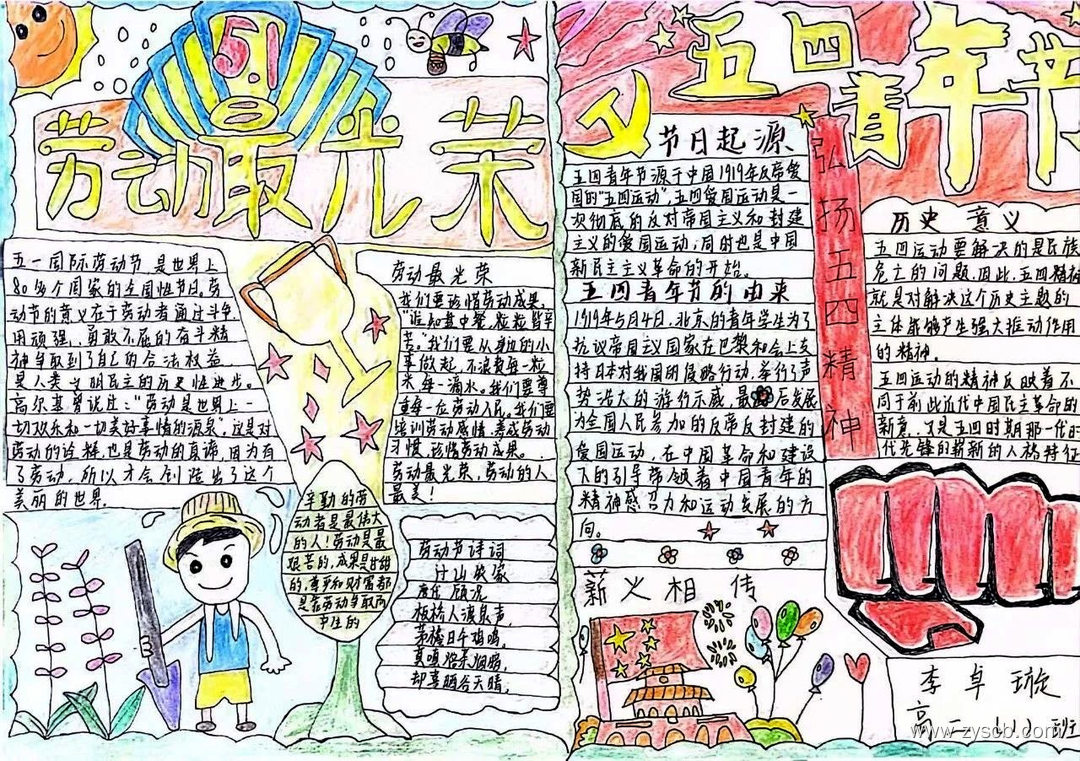 5.1
劳动最光荣
五一国际劳动节是世界上
80多个国家的全国性节日。劳
动节的意义在于劳动者通过斗争,
用顽强、勇敢不屈的奋斗精
神争取到了自己的合法权益,
是人类文明民主的历史性进步。
高尔基曾说过:“劳动是世界上一
切欢乐和一切美好事情的源泉”。这是对
劳动的诠释,也是劳动的真谛,因为有
了劳动,所以才会创造出了这个
美丽的世界.
劳动最光荣
我们要珍惜劳动成果。
“谁知盘中餐,粒粒皆辛
苦。”我们要从身边的小
事做起,不浪费每一粒
米每一滴水。我们要尊
重每一位劳动人民。我们要
培训劳动感情,养成劳动
习惯,珍惜劳动成果。
劳动最光荣,劳动的人
最美!
辛勤的劳
动者是最伟大
的人!劳动是最
艰苦的,成果是甘甜
的,
和财富都
是在劳动争取而
的
劳动节诗词
过山农家
唐代 顾况
板桥人渡泉声,
茅檐日午鸡鸣,
莫嗔焙茶烟暗,
却喜晒谷天晴,
五四青年节
节日起源
五四青年节源于中国1919年反帝爱
国的“五四运动”,五四爱国运动是一
次彻底的反对帝国主义和封建
主义的爱国运动,同时也是中国
新民主主义革命的开始。
五四青年节的由来
1919年5月4日,北京的青年学生为了
抗议帝国主义国家在巴黎和会上支
持日本对我国的侵略行动,举行了声
势浩大的游行示威,最后发展
为全国人民参加的反帝反封建的
爱国运动,在中国革命和建设
下的引导带领着中国青年的
精神感召力和运动发展的方
向。
弘扬五四精神
历史意义
五四运动要解决的是民族
危亡的问题,因此,五四精神
就是对解决这个历史主题的
主体能够产生强大推动作用
的精神.
五四运动的精神反映着不
同于前此近代中国民主革命的
新声,又是五四时期那一代时
代先锋的崭新的人格特征
薪火相传
李卓璇
高一(11)班
www.zyscb.com